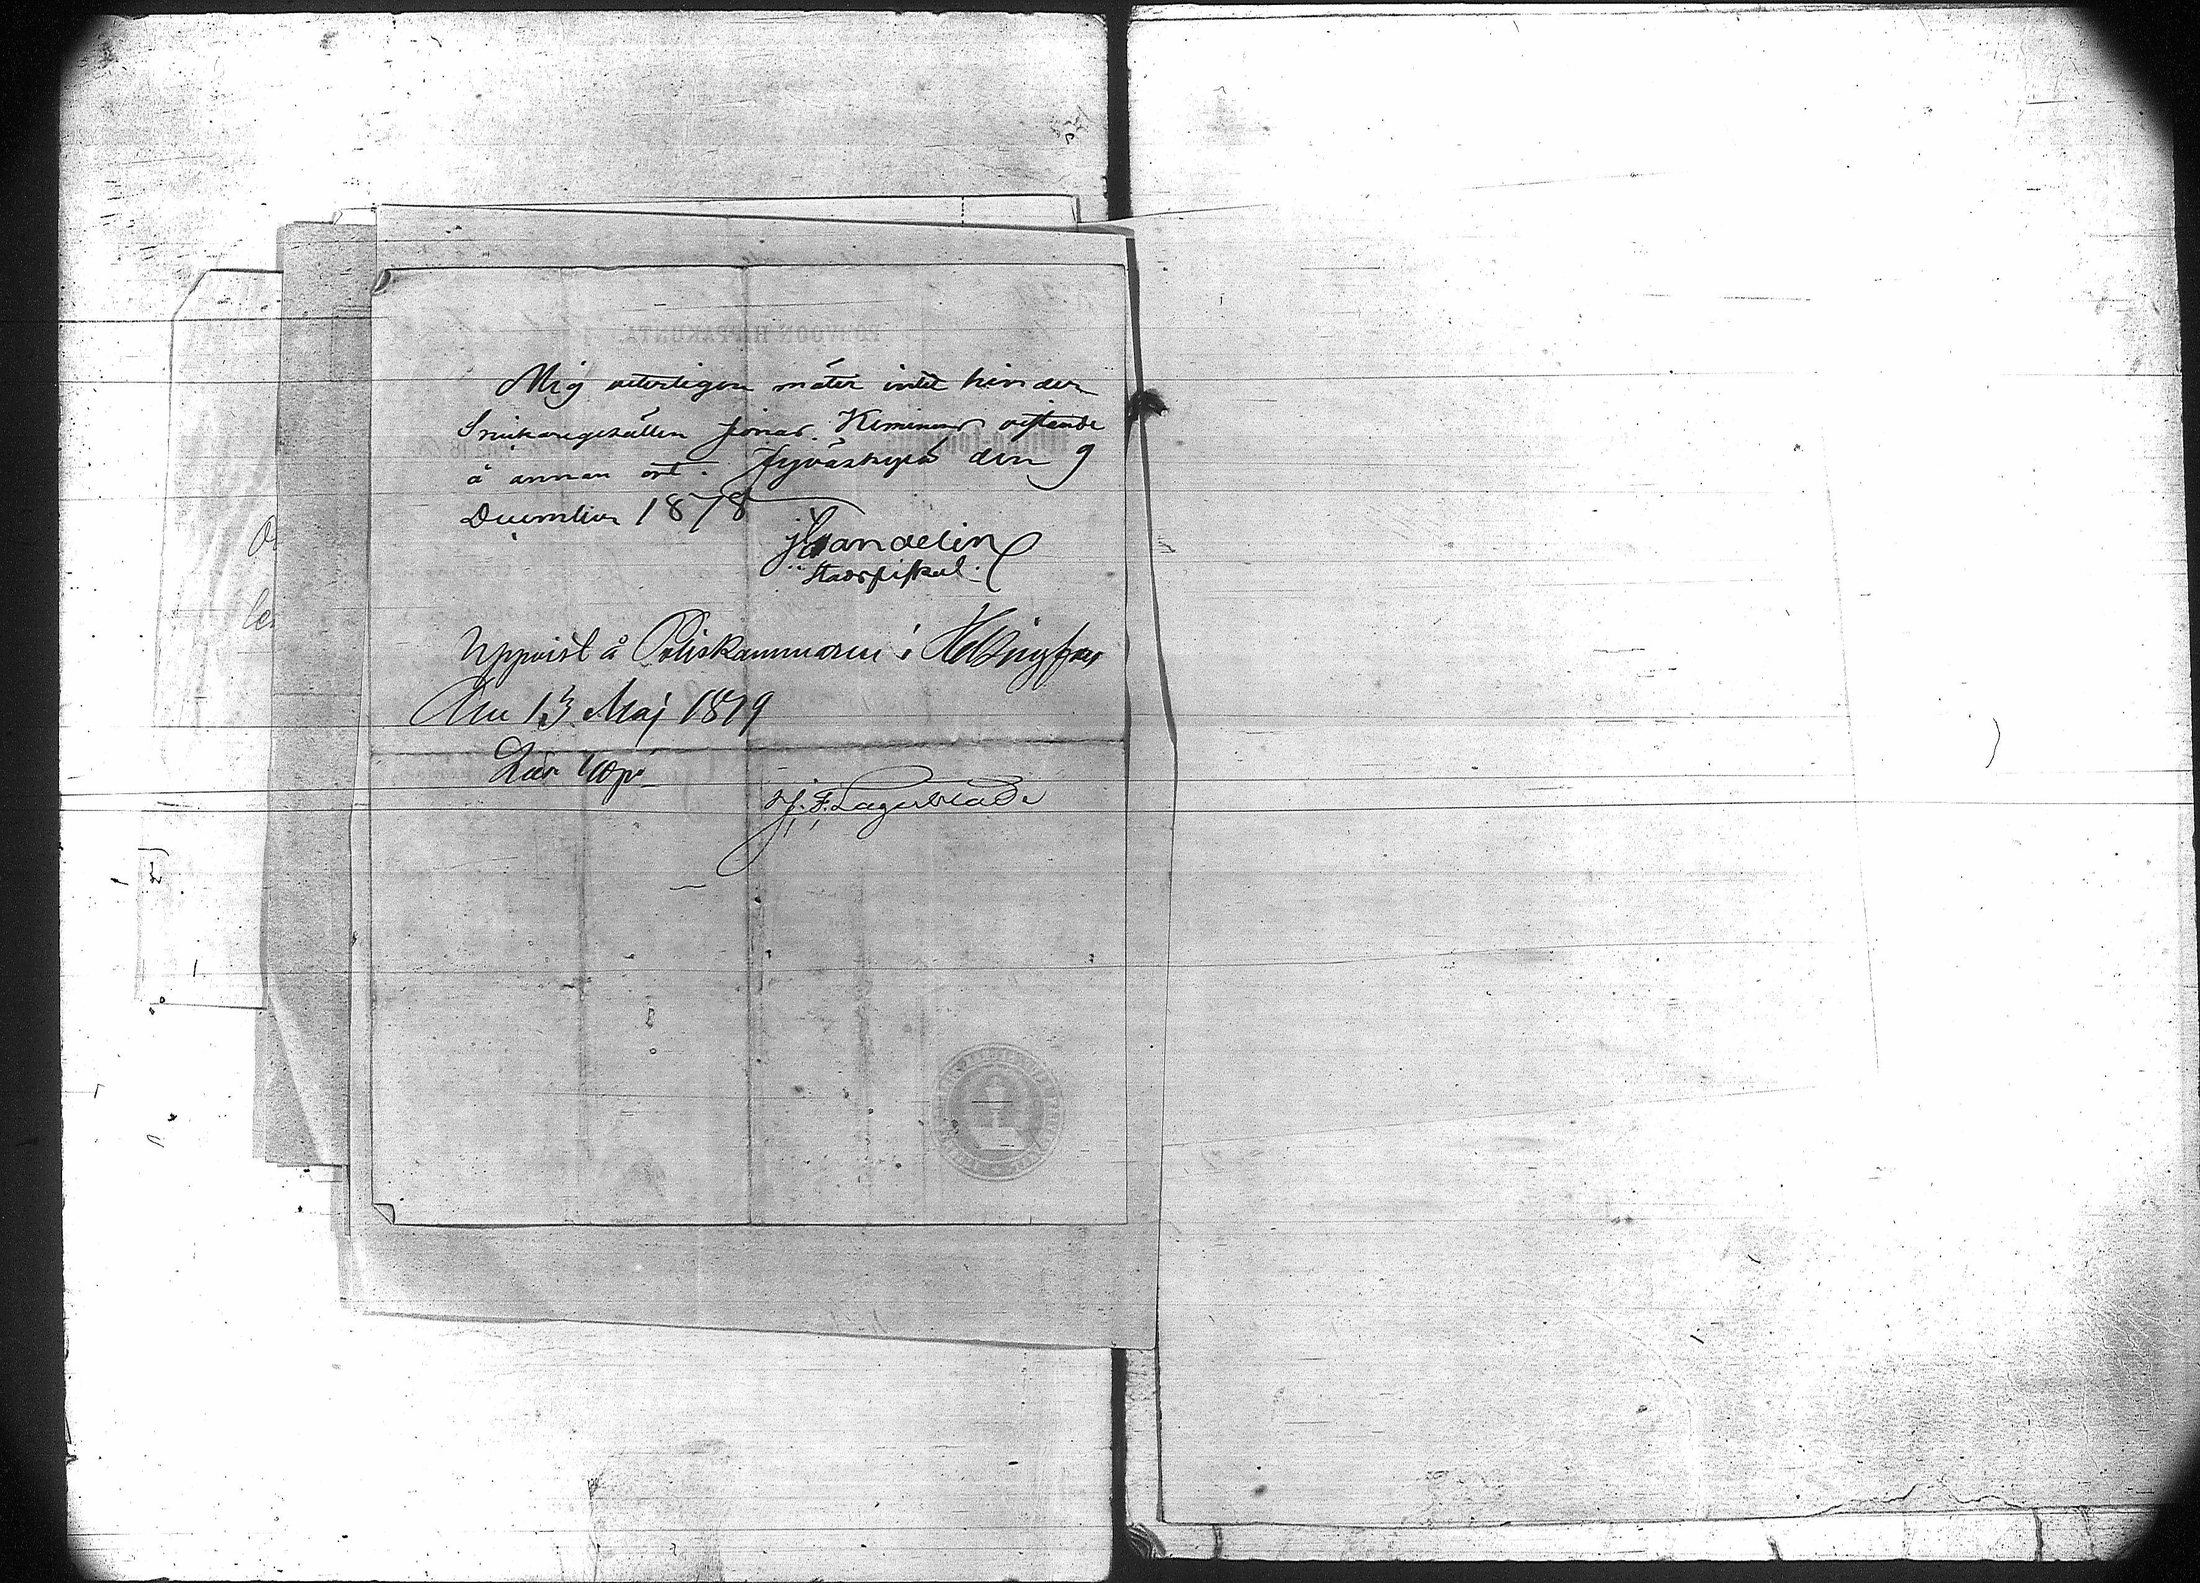 Mig veterligen möter intet hinder
Snickaregesällen Jonas Keminen vistande
å annan ort. Jyväskylä den 9
December 1878
J Sandelin
Stadsfiskal.
Uppvist å Poliskammaren i Helsingfors
den 13 Maj 1879
J. F. Lagerblade